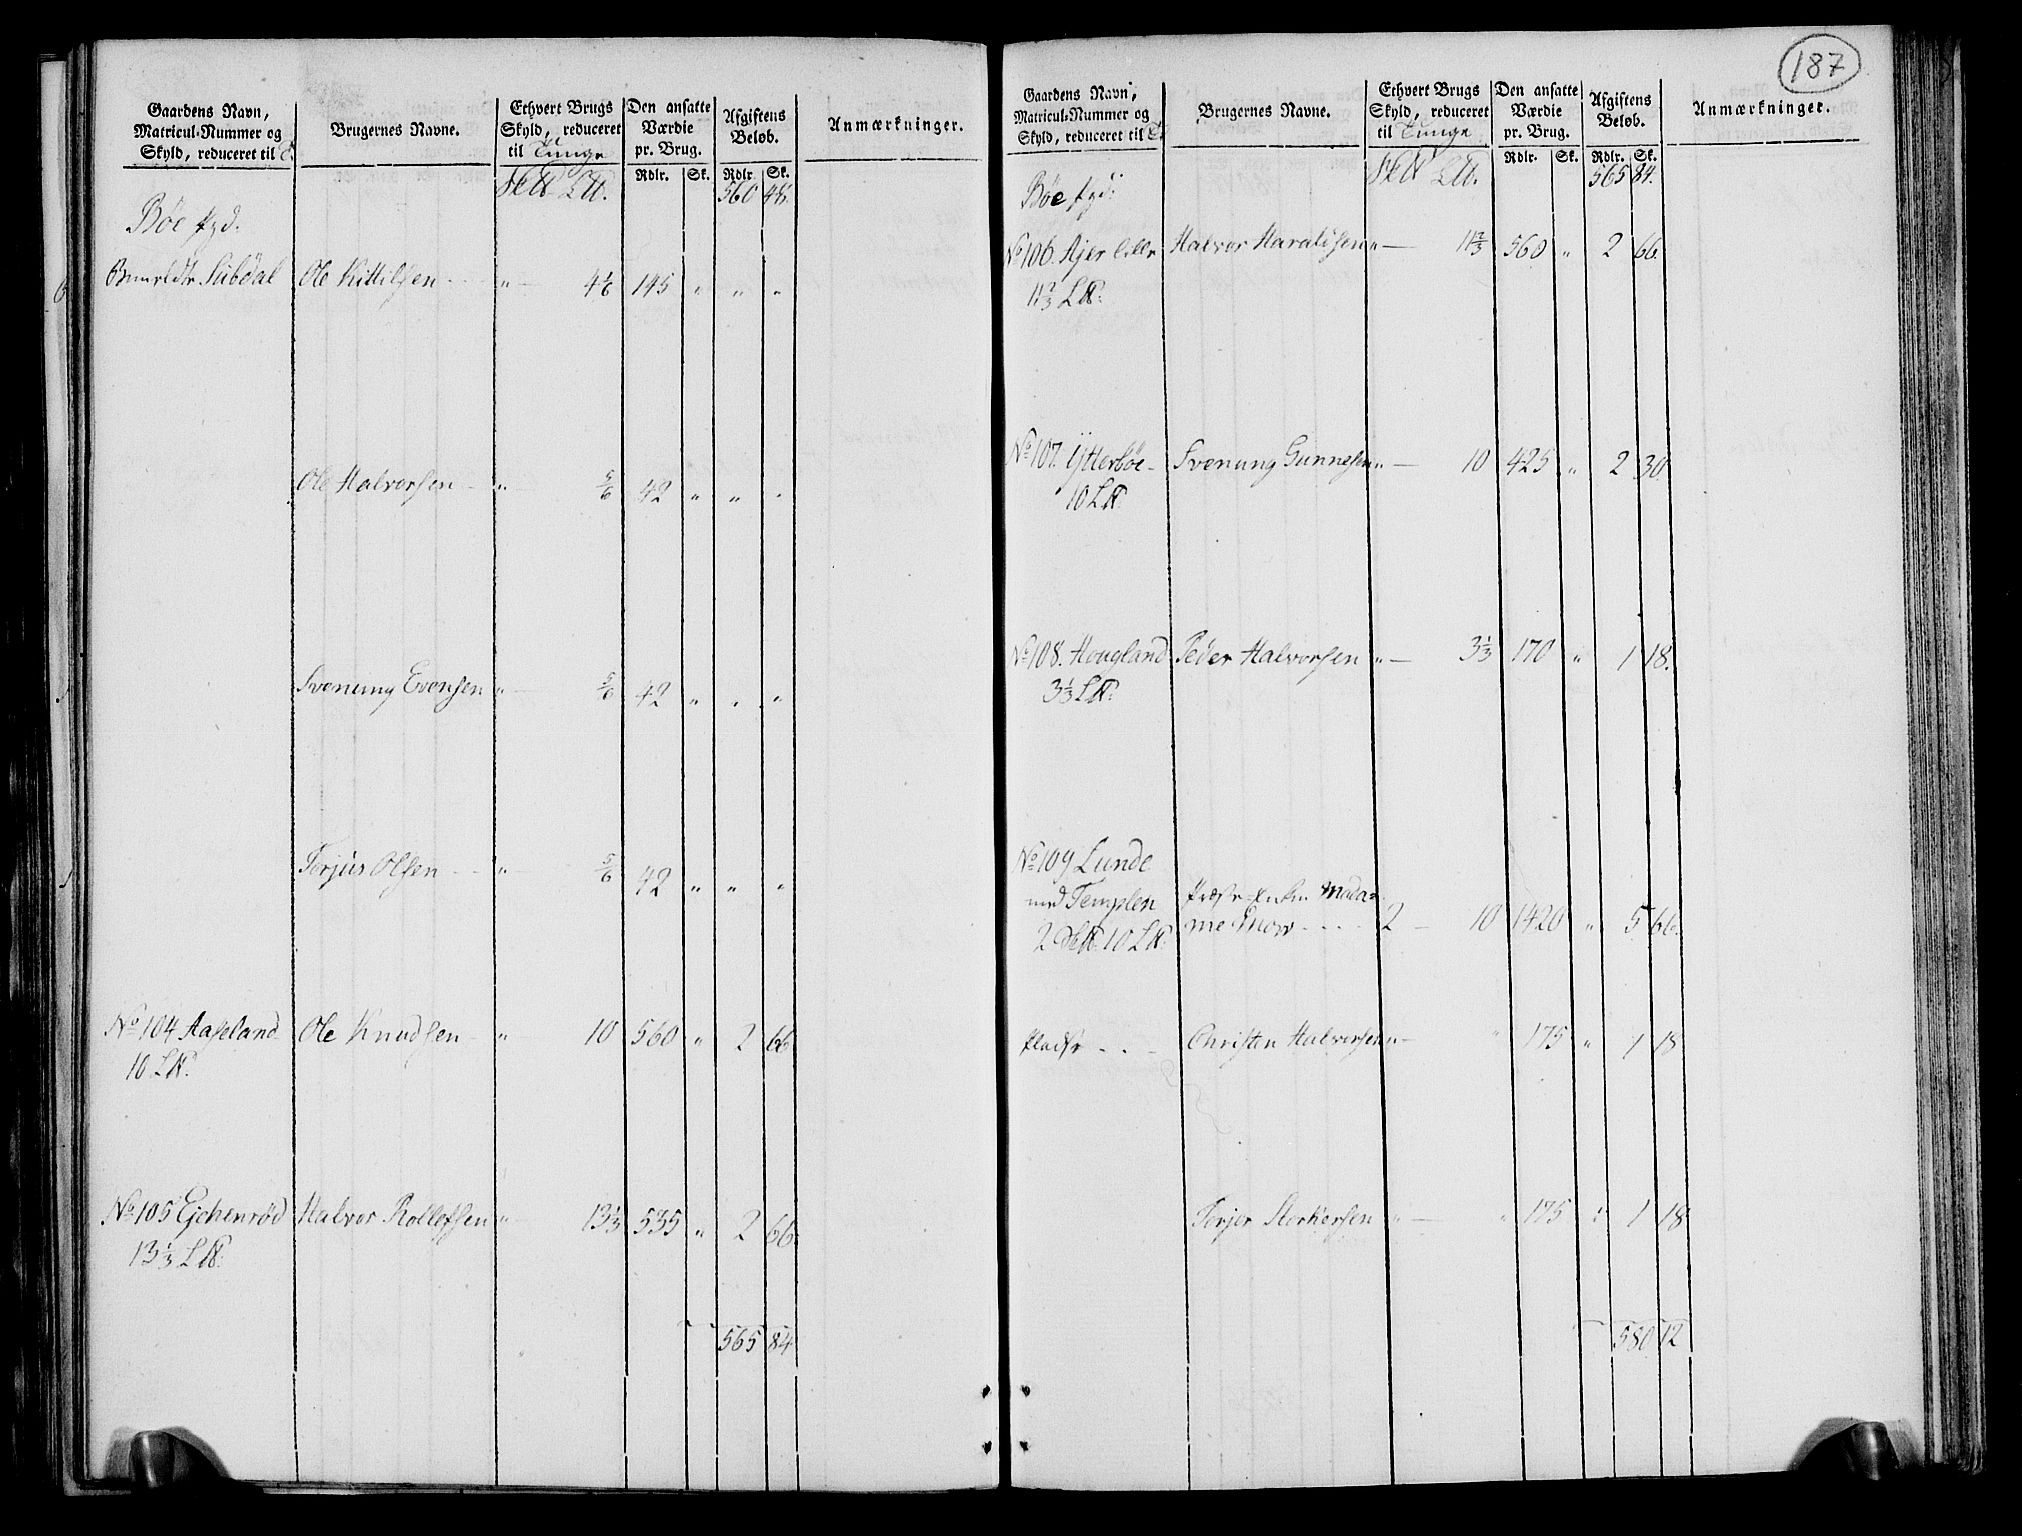 187
Gaardens Navn, Matricul-Nummer og Skyld, reduceret til T.
Brugernes Navne.
Ethvert Brugs Skyld, reduceret til Tunge
Den ansatte Værdie pr. Brug.
Afgiftens Beløb.
Anmærkninger.
Rdlr. Sk. Rdlr. Sk.
560 48.
Bøe
Subdal Ole Kittilsen " 4 1/6 145 " " "
Ole Halvorsen " 5/6 42 " " "
Svenung Evensen " 5/6 42 " " "
Torjus Olsen " 5/6 42 " " "
No 104 Aaseland Ole Knudsen " 10 560 " 2 66
10 L℔.
No 105 Ejchenrød Halvor Rollefsen " 13 1/3 535 " 2 66.
13 1/3 L℔.
565 84
Gaardens Navn, Matricul-Nummer og Skyld, reduceret til T.
Brugernes Navne.
Ethvert Brugs Skyld, reduceret til Tunge
Den ansatte Værdie pr. Brug.
Afgiftens Beløb.
Anmærkninger.
Rdlr. Sk. Rdlr. Sk.
565 84.
Bøe
No 106. Ajer lille Halvor Haraldsen " 11 2/3 560 " 2 66.
11 2/3 L℔.
No 107. Ytterbøe Svenung Gunnesen " 10 425 " 2 30.
10 L℔.
No 108. Hougland Peder Halvorsen " 3 1/3 170 " 1 18.
3 1/3 L℔.
No 109 Lunde
med Templen Præste Enken Mada-
2 10 L℔. me 2 10 1420 " 5 66.
Pladse Christen Halvorsen " " 175 " 1 18
Torjer Storkersen " " 175 : 1 18
580 12